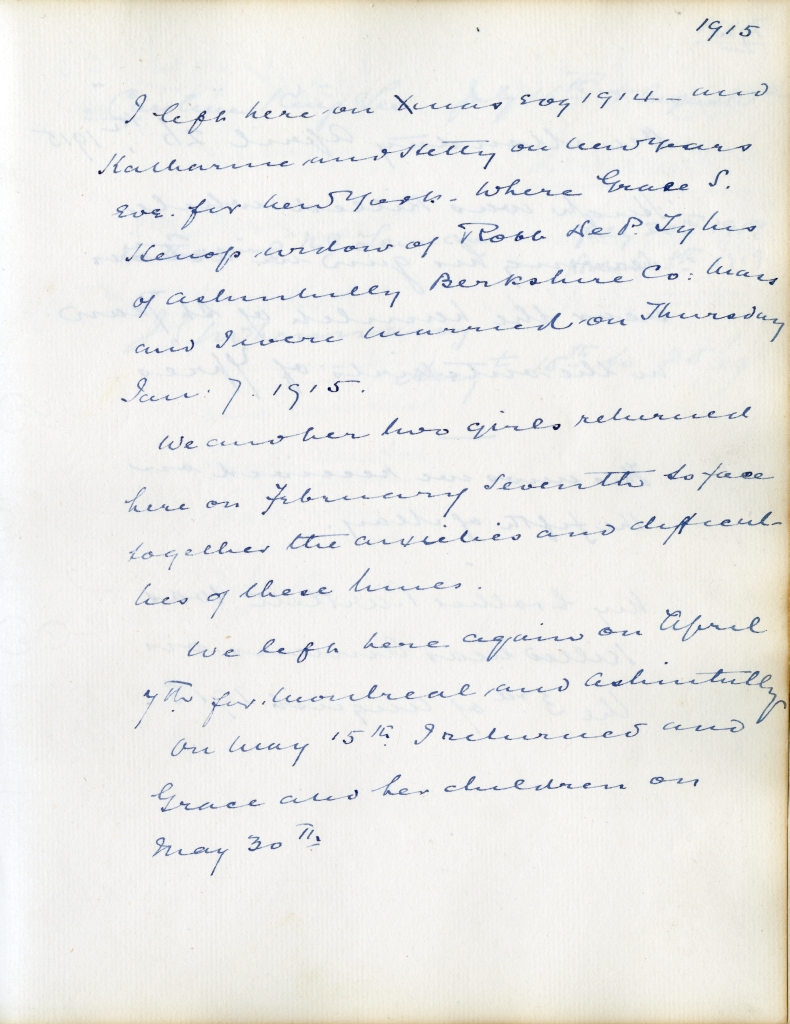 1915
I left here on Xmas Eve 1914 - and
Katharine and Hetty on New Years
Eve. for New York - Where Grace S.
Henop widow of Robb De P. Tytus
of Ashintully Berkshire Co: Mass
and I were married on Thursday
Jan: 7. 1915.
We and her two girls returned
here on February Seventh to face
together the anxieties and difficul-
ties of these times.
We left here again on April
7th for Montreal and Ashintully
On May 15th I returned and
Grace and her children on
May 30th